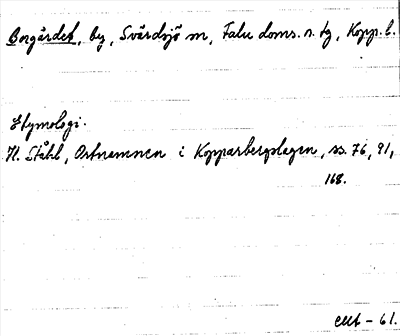 Borgärdet, by, Svärdsjö sn, Falu doms. n. tg, Kopp. l.
Etymologi.
H. Ståhl, Ortnamnen i Kopparbergslagen, ss. 76, 91,
168.
- 61.